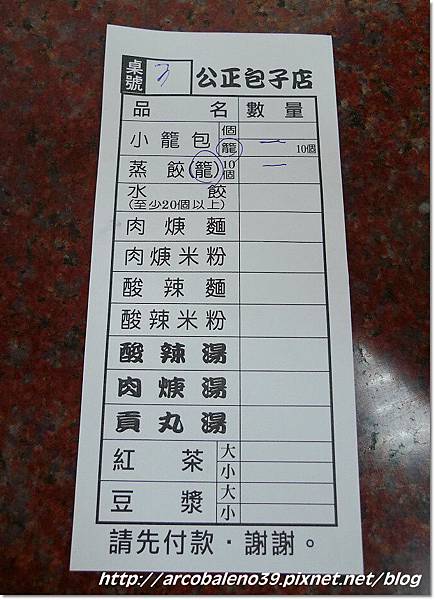 桌號 3 公正包子店
品名 數量
小籠包 個
籠 一 10個
蒸餃(籠) 10個 一
水餃
(至少20個以上)
肉焿麵
肉焿米粉
酸辣麵
酸辣米粉
酸辣湯
肉焿湯
貢丸湯
紅茶 大
小
豆漿 大
小
請先付款．謝謝。
http://arcobaleno39.pixnet.net/blog